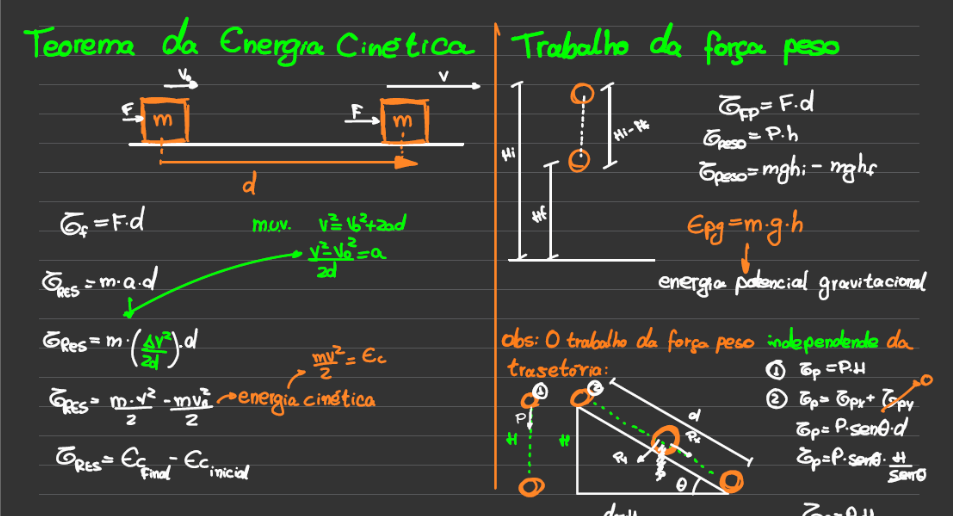 Teorema da Energia Cinética
V₀
V
F
m
F
m
d
τf = F·d
m.u.v. v² = v₀² + 2ad
v² - v₀² / 2d = a
τRES = m·a·d
τRES = m·(Δv²/2d)·d
mv²/2 = Ec
τRES = m·v²/2 - mv₀²/2 → energia cinética
τRES = Ec Final - Ec inicial
Trabalho da força peso
Hi
Hi-Hf
Hf
τFP = F·d
τpeso = P·h
τpeso = mghi - mghf
Epg = m·g·h
energia potencial gravitacional
obs: O trabalho da força peso independende da
trasetória:
① τp = P.H
② τp = τPx + τPy → 0
τp = P·senθ·d
τp = P·senθ·H/senθ
①
P
H
②
H
d
Px
θ